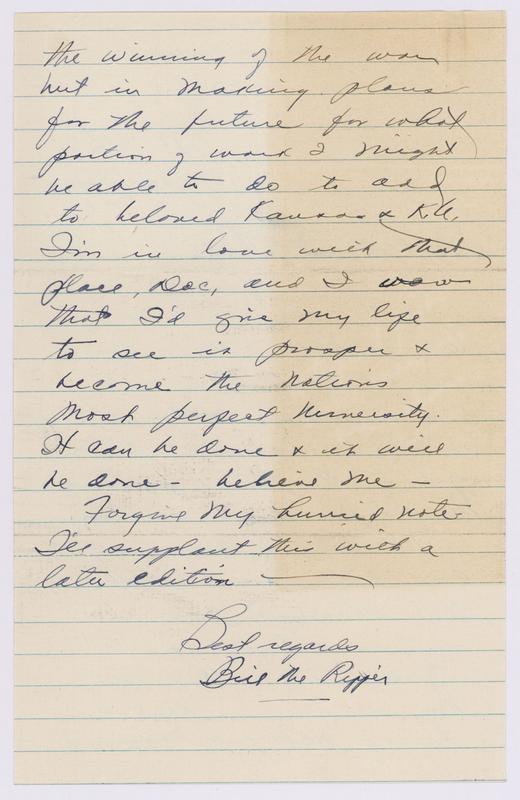 the winning of the war
but in making plans
for the future for what
portion of work I might
be able to do to add
to beloved Kansas & K.U.
I'm in love with that
place, Doc, and I
that I'd give my life
to see it prosper &
become the nations
most perfect University.
It can be done & it will
be done - believe me -
Forgive my hurried note.
I'll supplant this with a
later edition
Best regards
Bill the Ripper